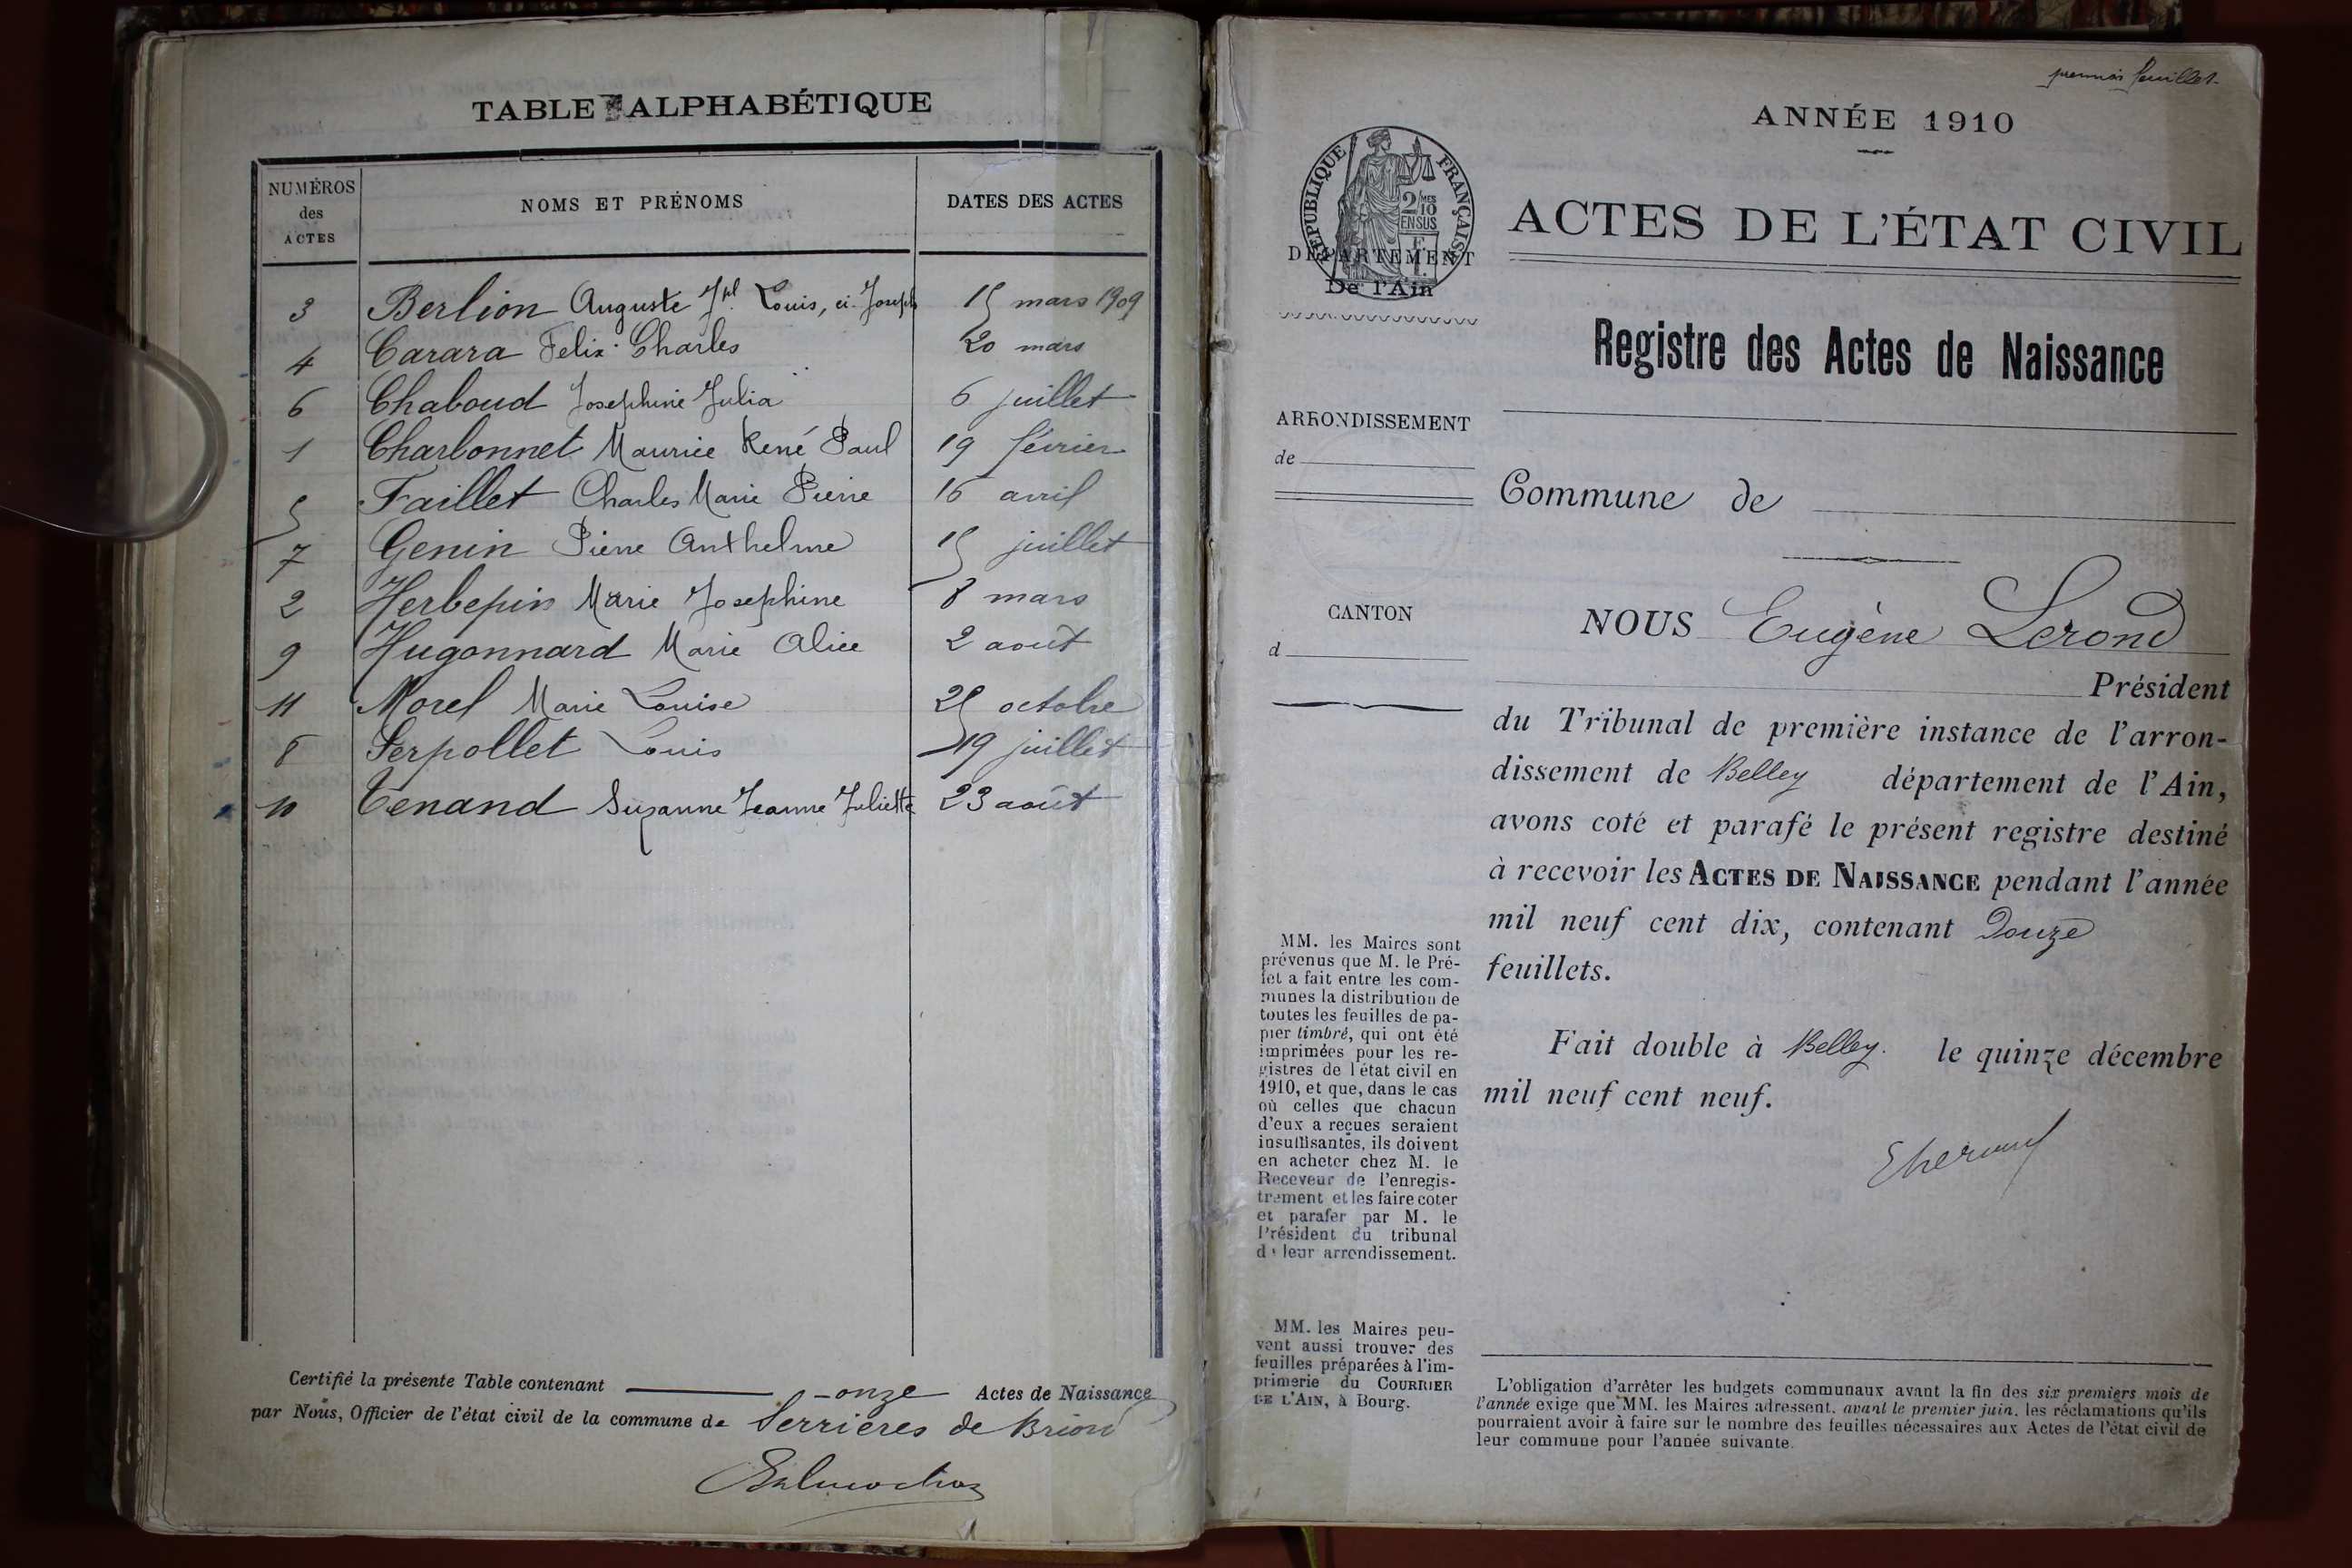 TABLE ALPHABÉTIQUE
NUMÉROS des ACTES
NOMS ET PRÉNOMS
DATES DES ACTES
3 Berlion Auguste Jph Louis, ci. Joseph 15 mars 1909
4 Carara Felix Charles 20 mars
6 Chaboud Josephine Julia 6 juillet
1 Charbonnet Maurice René Paul 19 février
5 Faillet Charles Marie Pierre 16 avril
7 Genin Pierre Anthelme 15 juillet
2 Herbepin Marie Josephine 8 mars
9 Hugonnard Marie Alice 2 août
11 Morel Marie Louise 25 octobre
8 Serpollet Louis 19 juillet
10 Tenand Suzanne Jeanne Juliette 23 août
Certifié la présente Table contenant onze Actes de Naissance
par Nous, Officier de l'état civil de la commune de Serrières de Briord
premier feuillet
ANNÉE 1910
RÉPUBLIQUE FRANÇAISE
2/10MES
EN SUS
DÉPARTEMENT
De l'Ain
ACTES DE L'ÉTAT CIVIL
Registre des Actes de Naissance
ARRONDISSEMENT
de
Commune de
CANTON
d
NOUS Eugène Lerond
Président
du Tribunal de première instance de l'arron-
dissement de Belley département de l'Ain,
avons coté et parafé le présent registre destiné
à recevoir les ACTES DE NAISSANCE pendant l'année
mil neuf cent dix, contenant Douze
feuillets.
Fait double à Belley. le quinze décembre
mil neuf cent neuf.
MM. les Maires sont
prévenus que M. le Pré-
fet a fait entre les com-
munes la distribution de
toutes les feuilles de pa-
pier timbré, qui ont été
imprimées pour les re-
gistres de l'état civil en
1910, et que, dans le cas
où celles que chacun
d'eux a reçues seraient
insuffisantes, ils doivent
en acheter chez M. le
Receveur de l'enregis-
trement et les faire coter
et parafer par M. le
Président du tribunal
de leur arrondissement.
MM. les Maires peu-
vent aussi trouver des
feuilles préparées à l'im-
primerie du COURRIER
DE L'AIN, à Bourg.
L'obligation d'arrêter les budgets communaux avant la fin des six premiers mois de
l'année exige que MM. les Maires adressent, avant le premier juin, les réclamations qu'ils
pourraient avoir à faire sur le nombre des feuilles nécessaires aux Actes de l'état civil de
leur commune pour l'année suivante.